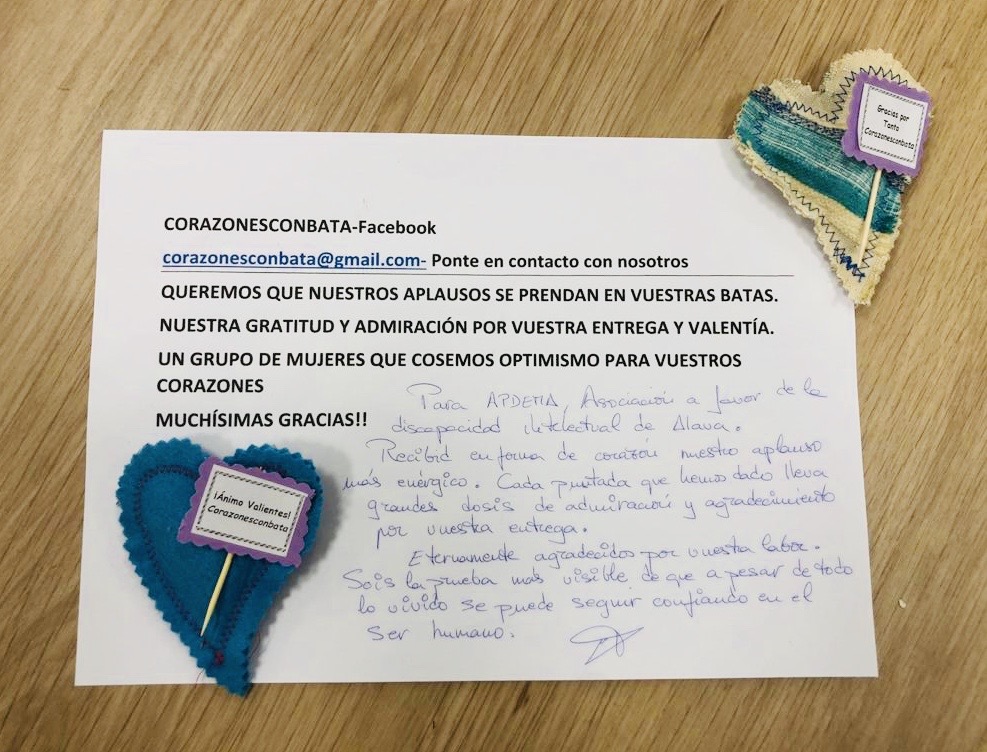 Gracias por
Tanto
Corazonesconbata
CORAZONESCONBATA-Facebook
corazonesconbata@gmail.com- Ponte en contacto con nosotros
QUEREMOS QUE NUESTROS APLAUSOS SE PRENDAN EN VUESTRAS BATAS.
NUESTRA GRATITUD Y ADMIRACIÓN POR VUESTRA ENTREGA Y VALENTÍA.
UN GRUPO DE MUJERES QUE COSEMOS OPTIMISMO PARA VUESTROS
CORAZONES
MUCHÍSIMAS GRACIAS!!
Para APDEMA, Asociación a favor de la
discapacidad intelectual de Alava.
Recibid en forma de corazón nuestro aplauso
más enérgico. Cada puntada que hemos dado lleva
grandes dosis de admiración y agradecimiento
por vuestra entrega.
Eternamente agradecidos por vuestra labor.
Sois la prueba más visible de que a pesar de todo
lo vivido se puede seguir confiando en el
ser humano.
¡Ánimo Valientes!
Corazonesconbata